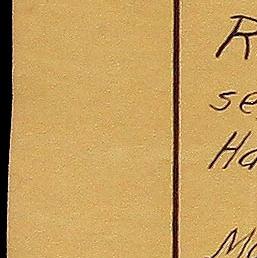 R
se
Ha
Mo